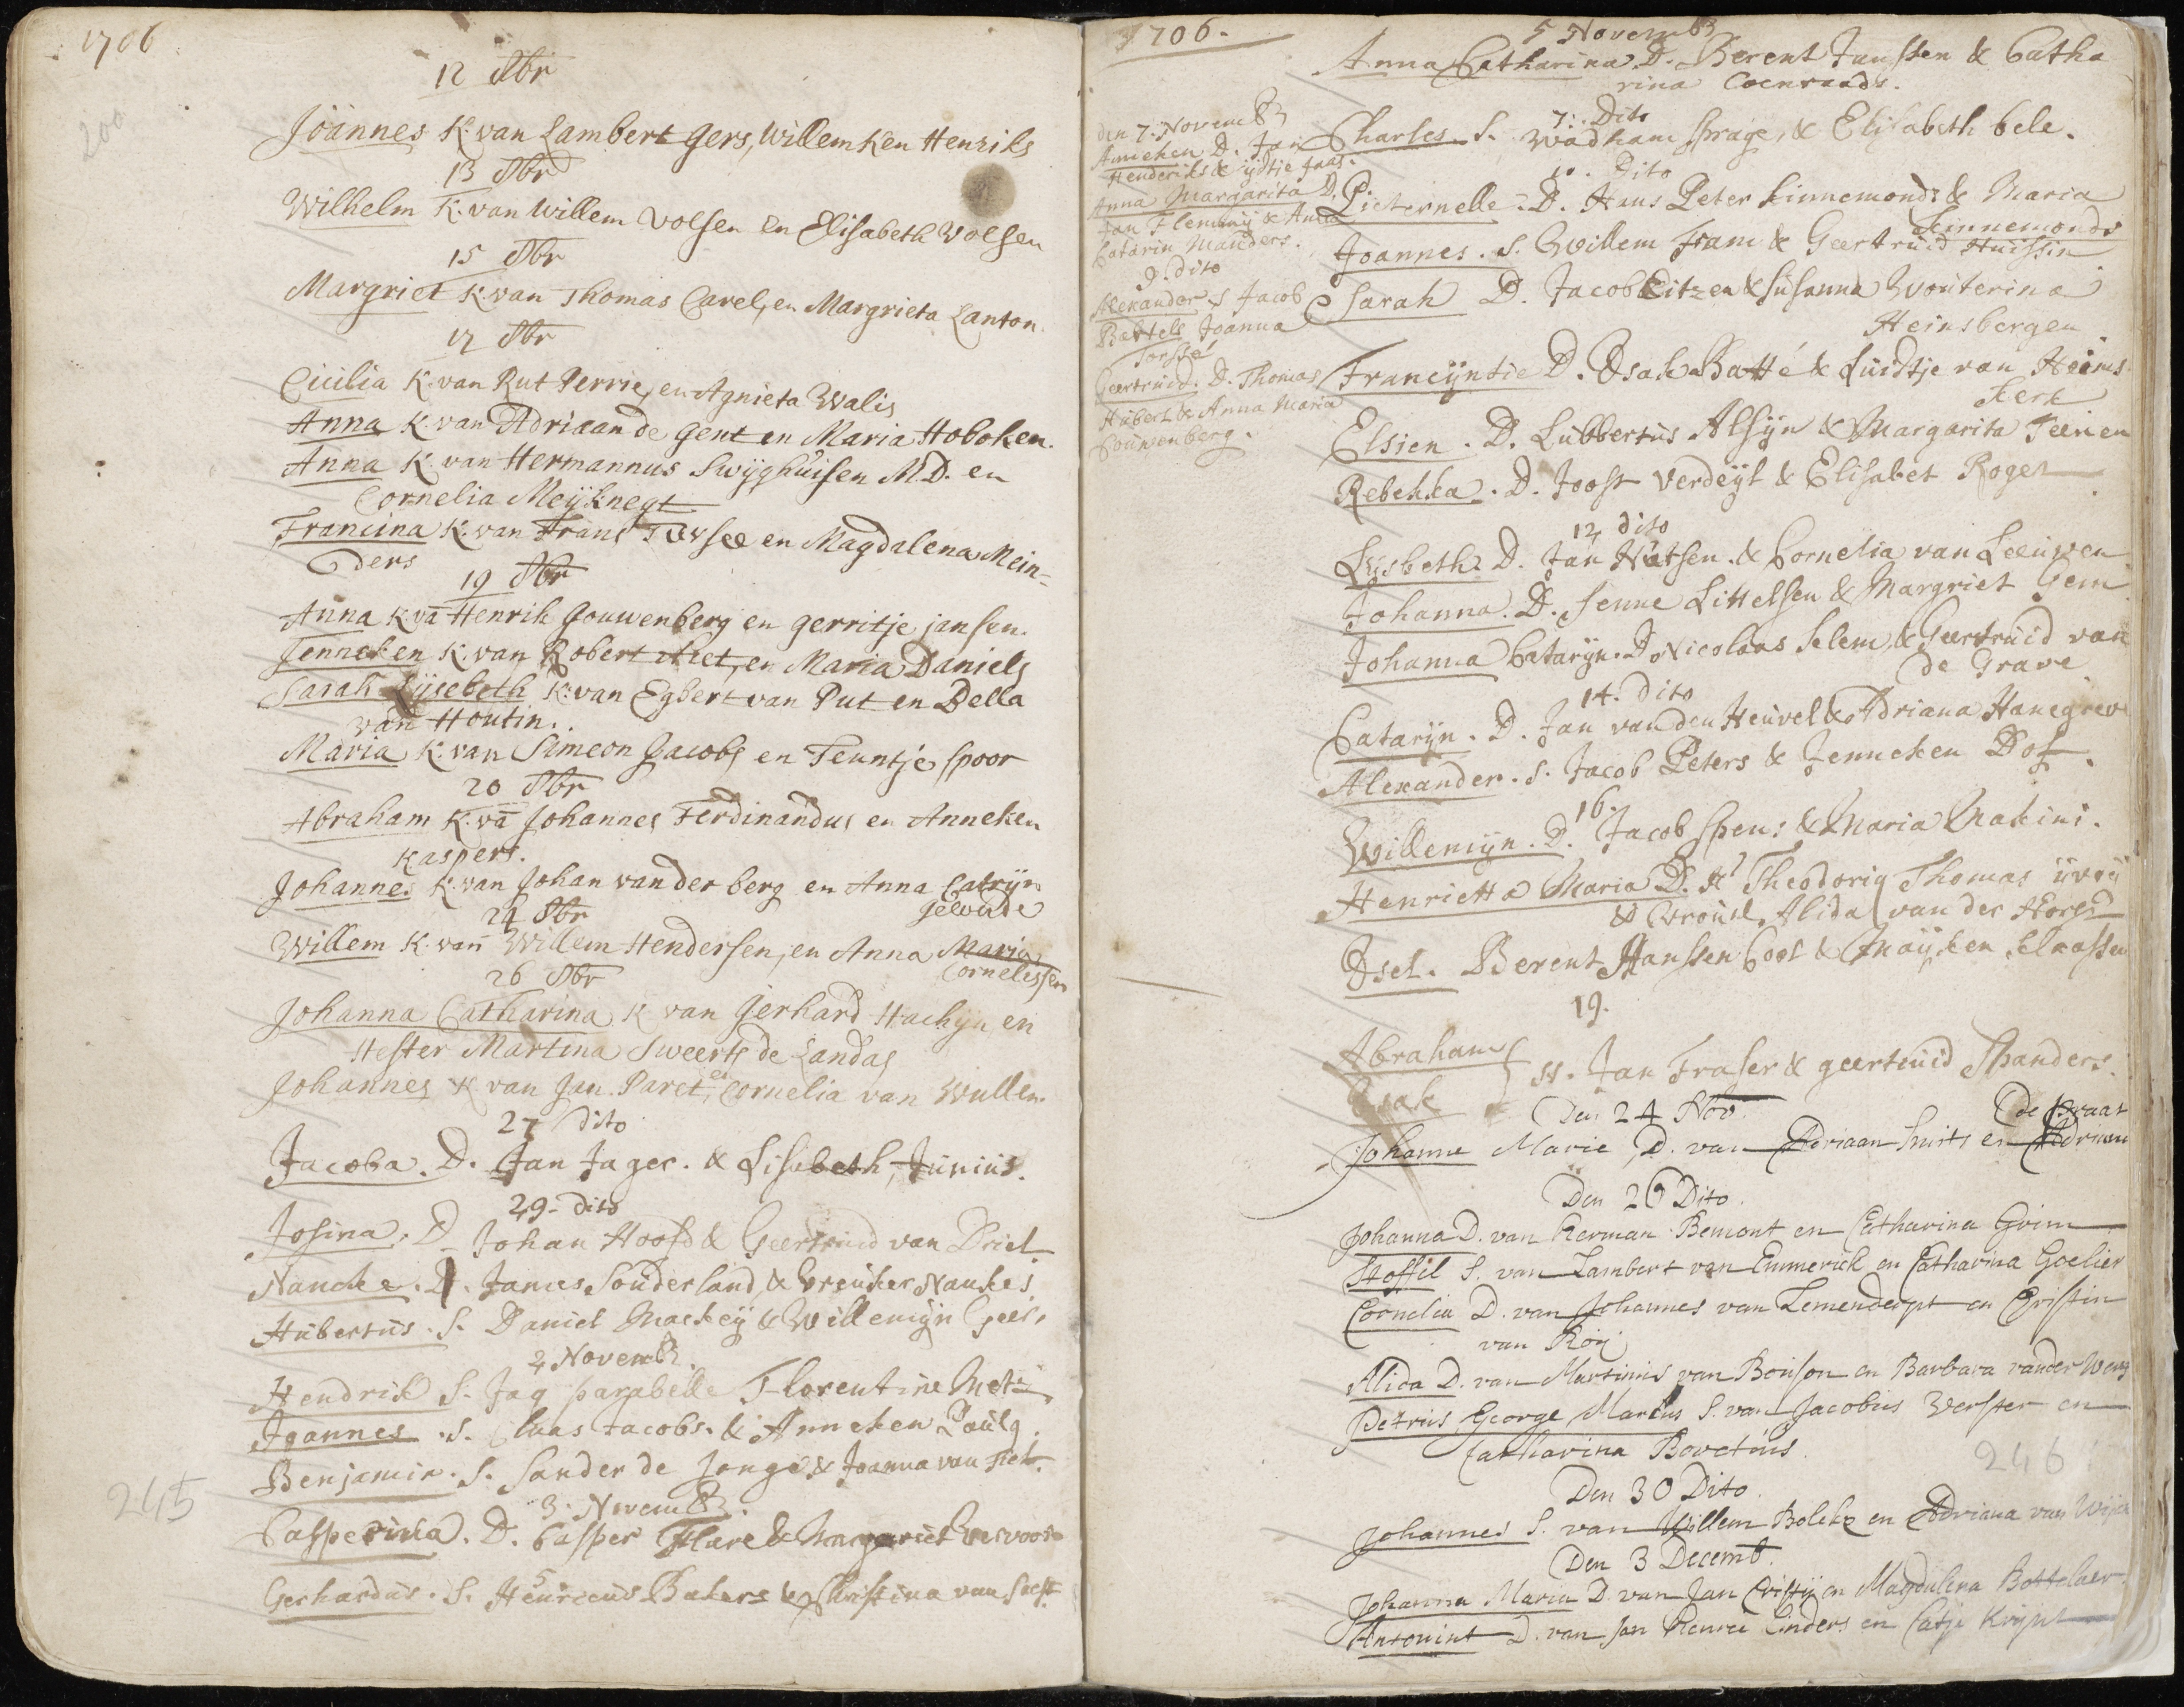 1706
200
12 8br
Joannes K. van Lambert Gers, Willemken Henriks
13 8br
Wilhelm K. van Willem Volsen en Elisabeth Volsen
15 8br
Margriet K. van Thomas Carel, en Margrieta Lanton.
17 8br
Cicilia K. van Rut Perrie, en Agnieta Walis
Anna K. van Adriaan de Gent en Maria Hoboken.
Anna K. van Hermannus Swijghuisen M.D. en
Cornelia Meijknegt
Francina K. van Frans Tersee en Magdalena Mein=
ders
19 8br
Anna K. vā Henrik Gouwenberg en gerritje jansen.
Jenneken K. van Robert Niet, en Maria Daniels
Sarah Lijsebeth K. van Egbert van Put en Della
van Houtin.
Maria K. van Simeon Jacobs en Teuntje Spoor
20 8br
Abraham K. vā Johannes Ferdinandus en Anneken
Kaspers.
Johannes K. van Johan vander berg en Anna Catrijn
Gewude
24 8br
Willem K. van Willem Hendersen, en Anna Maria
Cornelissen
26 8br
Johanna Catharina K van Gerhard Hachijn, en
Hester Martina Sweerts de Landas
Johannes K van Jan Paret, en Cornelia van Wullen.
27 dito
Jacoba. D. Jan Jager. & Lisebeth Junius.
29. dito
Josina. D. Johan Hoofd & Geertruid van Driel
Nancke. D. James Souderland, & Breuker Naukes
Hubertus. S. Daniel Mackeij & Willemijn Geer.
2 Novemb.
Hendrik S. Jaq parabelle Florentine Metz
Joannes. S. Claas Jacobs. & Anneken Pauls.
Benjamin. S. Sander de Jonge & Joanna van Tiel.
3. Novemb.
Casperina. D. Casper Flare & Margariet Vervoort
5.
Gerhardus. S. Henricus Bakers & Christina van Soest
245
1706.
5 Novemb.
Anna Catharina. D. Berent Janssen & Catha
rina Coenraads.
7. Dito
Charles. S. Wadham Sprage, & Elisabeth bele.
10. Dito
Pieternelle. D. Hans Peter Finnemonds & Maria
Finnemonds
Joannes. S. Willem Fram & Geertruid Huissin
Sarah D. Jacob Eitzen & Susanna Wouterina
Heinsbergen.
Francijntie D. Isak Batté & Luidtje van Heems
Kerk
Elsien. D. Lubbertus Alsijn & Margarita Teenen
Rebekka. D. Joost Verdeijl & Elisabet Roger
12 dito
Lijsbeth. D. Jan Hutsen. & Cornelia van Leeuwen
Johanna. D. Senne Littelsen & Margriet Gem.
Johanna Catarijn. D. Nicolaas Selem, & Geertruid van
de Grave.
14. dito
Catarijn. D. Jan vanden Heuvel & Adriana Hanegreve
Alexander. S. Jacob Peters & Jenneken Dof.
16.
Willemijn. D. Jacob Spens & Maria Makini.
Henrietta Maria D. Hr Theodorig Thomas
& Vrouwe Alida van der Horst
Isel. Berent Hanssen Cool & Maijken Claassen
19.
Abraham
Isak
S. Jan Fraser & geertruid Spanders.
Den 24 Nov.
de Graat
Johanne Marie, D. van Adriaan Smits en Adriaen
Den 26 Dito.
Johanna D. van Herman Bemont en Catharina Grim
Stoffil S. van Lambert van Emmerick en Catharina Goelier
Cornelia D. van Johannes van Lemendegt en Cristin
van Roij
Alida D. van Martinus van Bonson en Barbara vander Werf
Petrus George Marius S. van Jacobus Verster en
Catharina Bovetius.
246
Den 30 Dito.
Johannes S. van Willem Bolck en Adriana van Wijck
Den 3 Decemb.
Johanna Maria D. van Jan Cristij en Magdalena Bottelaer.
Antonint D. van Jan Henrie Cinders en Catje Krijnt
den 7. Novemb.
Anneken D. Jan
Henderiks & ijdtje Jaas.
Anna Margarita D.
Jan Fleming & Anna
Catarin Manders.
9. dito
Alexander S Jacob
Bartels Joanna
Forssé
Geertruid. D. Thomas
Hubert & Anna Maria
Couwenberg.